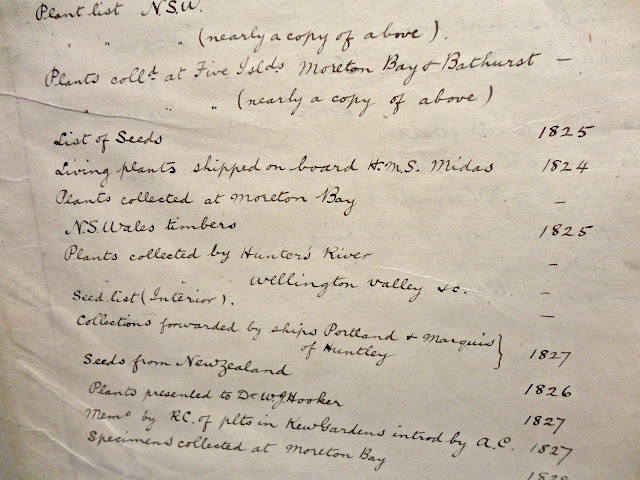 Plant list N.S.W.
" " " (nearly a copy of above).
Plants colld. at Five Islds. Moreton Bay & Bathurst —
" " " (nearly a copy of above)
List of Seeds 1825
Living plants shipped on board H.M.S. Midas 1824
Plants collected at Moreton Bay —
N.S. Wales timbers 1825
Plants collected by Hunter's River —
" " Wellington Valley &c. —
Seed list (Interior). —
Collections forwarded by ships Portland & Marquis
of Huntley } 1827
Seeds from New Zealand 1826
Plants presented to Dr. W J Hooker 1827
Memo by R.C. of plts in Kew Gardens introd by A.C. 1827
Specimens collected at Moreton Bay